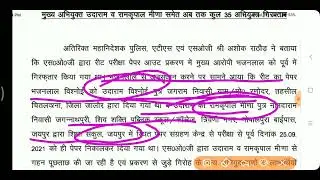 मुख्य अभियुक्त उदाराम व रामकृपाल मीणा समेत अब तक कुल 35 अभियुक्त गिरफ्तार
अतिरिक्त महानिदेशक पुलिस, एटीएस एवं एसओजी श्री अशोक राठौड़ ने बताया
कि एसओजी द्वारा की गयी रीट परीक्षा पेपर आउट प्रकरण में मुख्य आरोपी भजनलाल को पूर्व में
गिरफ्तार किया गया था। से करने पर सामने आया कि रीट का पेपर
भजनलाल विश्नोई को उदाराम विश्नोई पुत्र जगराम विश्नोई, रणोदर, तहसील
चितलवाना, जिला जालोर द्वारा दिया गया था व उदाराम को रामकृपाल मीणा पुत्र
निवासी जगन्नाथपुरी, शिव शक्ति पब्लिक स्कूल/ त्रिवेणी नगर, गोपालपुरा बाईपास,
जयपुर द्वारा शिक्षा संकुल, जयपुर में स्थित पेपर संग्रहण केन्द्र से परीक्षा से पूर्व दिनांक 25.09.
2021 को ही पेपर निकालकर दिया गया था। एसओजी द्वारा उदाराम व रामकृपाल मीणा से
गहन पूछताछ की जा रही है एवं प्रकरण से जुड़े गिरोह के